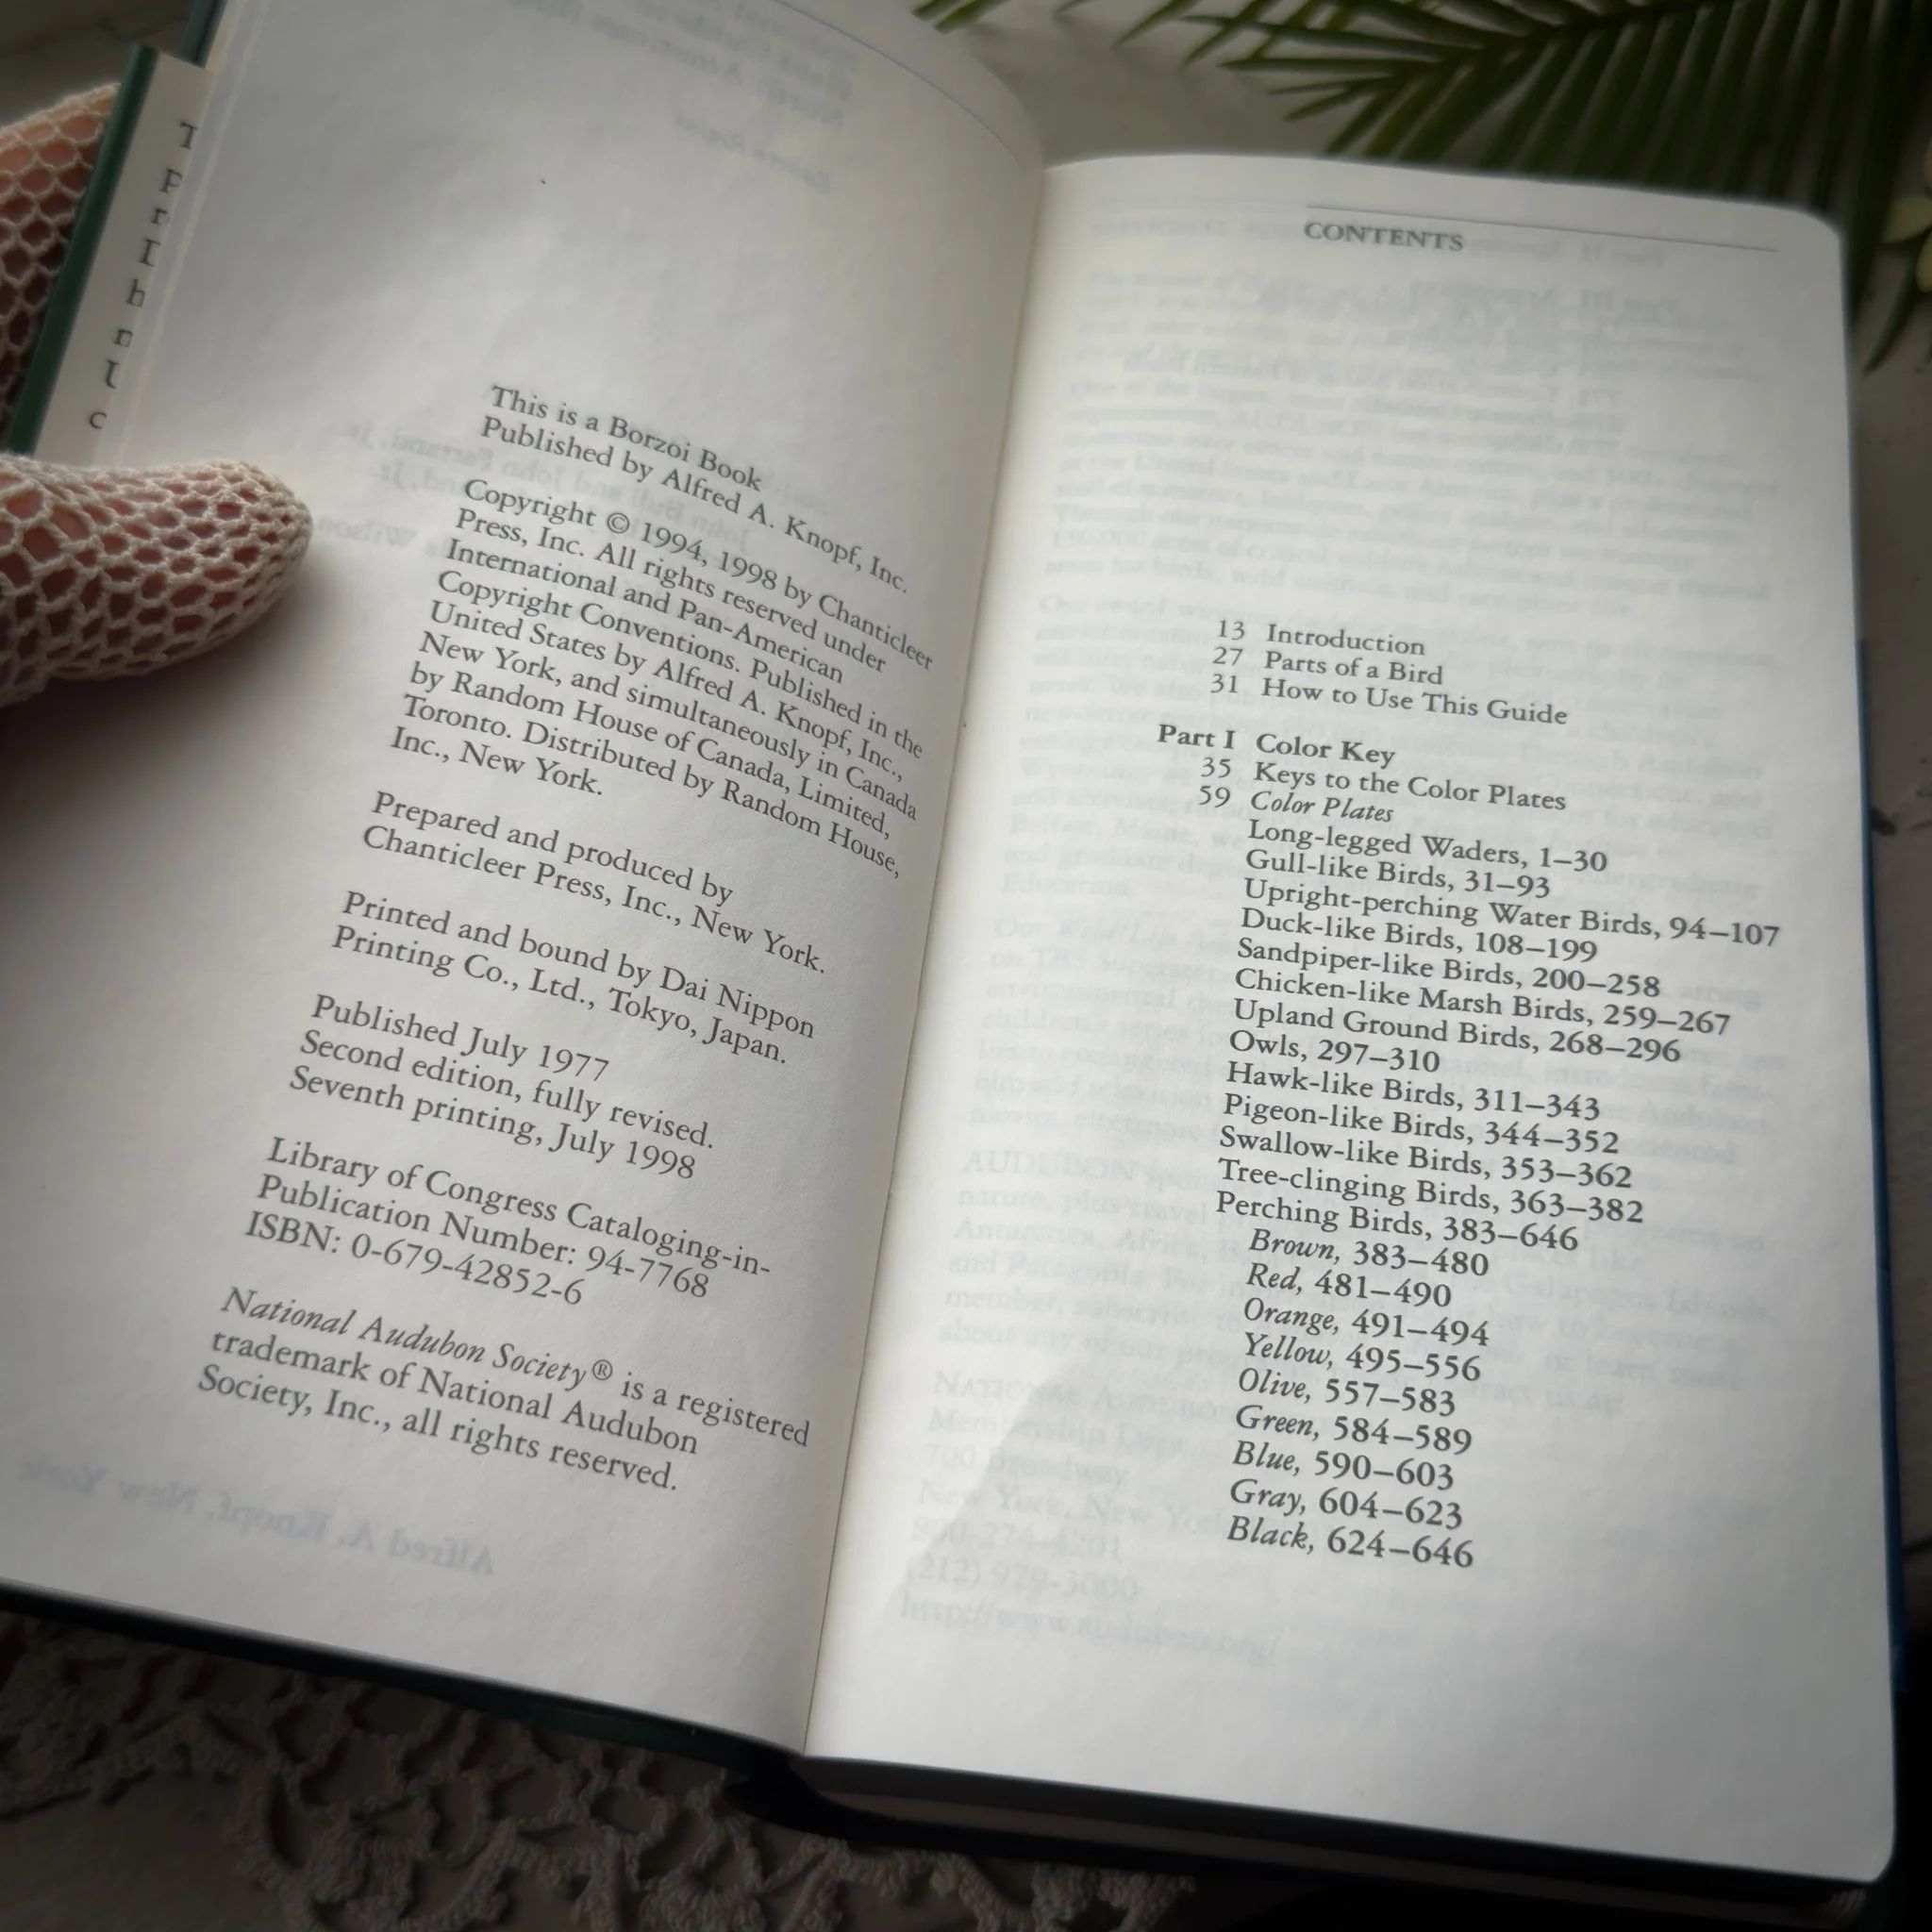 This is a Borzoi Book
Published by Alfred A. Knopf, Inc.
Copyright © 1994, 1998 by Chanticleer
Press, Inc. All rights reserved under
International and Pan-American
Copyright Conventions. Published in the
United States by Alfred A. Knopf, Inc.,
New York, and simultaneously in Canada
by Random House of Canada, Limited,
Toronto. Distributed by Random House,
Inc., New York.
Prepared and produced by
Chanticleer Press, Inc., New York.
Printed and bound by Dai Nippon
Printing Co., Ltd., Tokyo, Japan.
Published July 1977
Second edition, fully revised.
Seventh printing, July 1998
Library of Congress Cataloging-in-
Publication Number: 94-7768
ISBN: 0-679-42852-6
National Audubon Society® is a registered
trademark of National Audubon
Society, Inc., all rights reserved.
CONTENTS
13 Introduction
27 Parts of a Bird
31 How to Use This Guide
Part I Color Key
35 Keys to the Color Plates
59 Color Plates
Long-legged Waders, 1–30
Gull-like Birds, 31–93
Upright-perching Water Birds, 94–107
Duck-like Birds, 108–199
Sandpiper-like Birds, 200–258
Chicken-like Marsh Birds, 259–267
Upland Ground Birds, 268–296
Owls, 297–310
Hawk-like Birds, 311–343
Pigeon-like Birds, 344–352
Swallow-like Birds, 353–362
Tree-clinging Birds, 363–382
Perching Birds, 383–646
Brown, 383–480
Red, 481–490
Orange, 491–494
Yellow, 495–556
Olive, 557–583
Green, 584–589
Blue, 590–603
Gray, 604–623
Black, 624–646